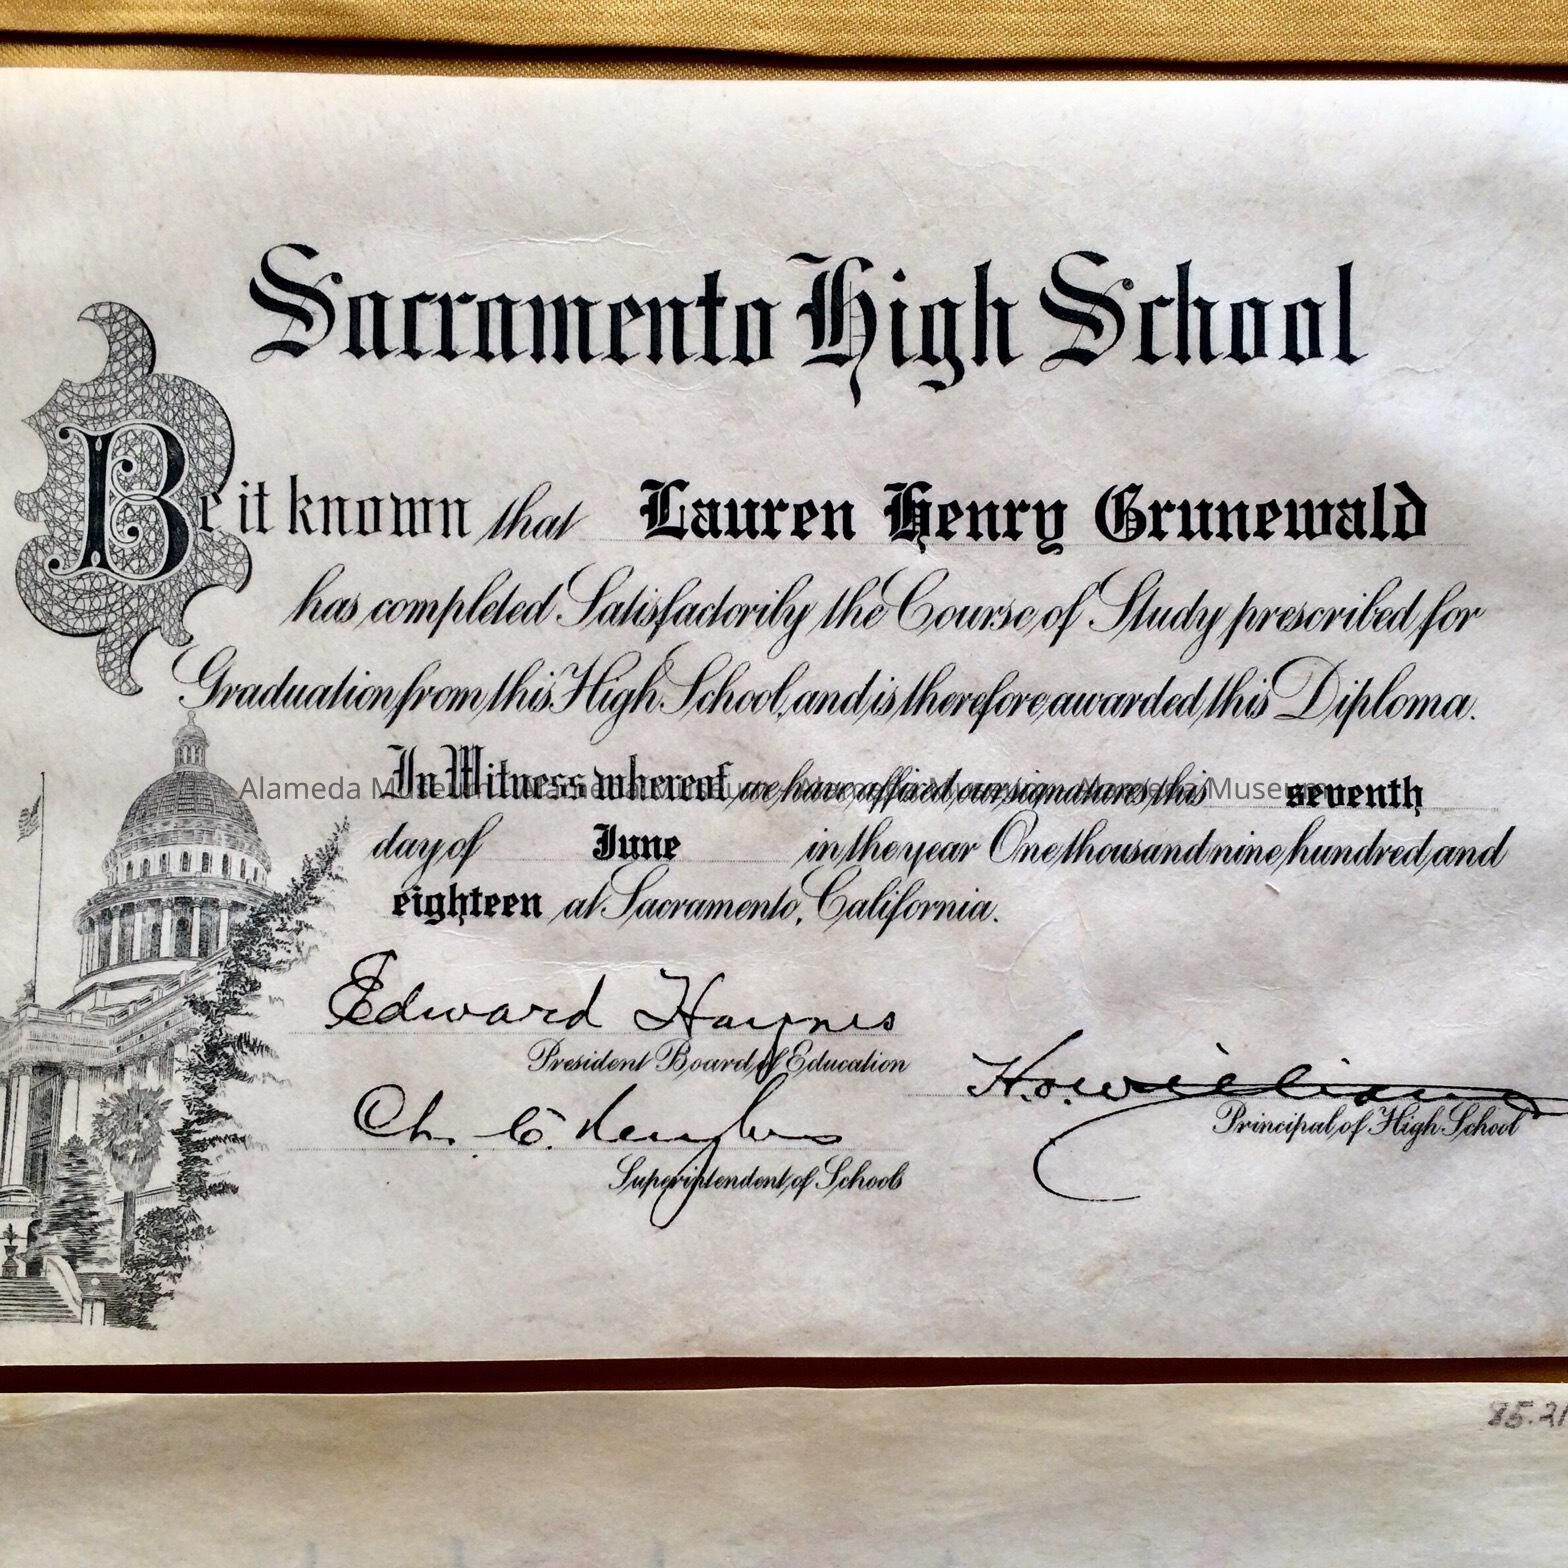 Sacramento High School
Be it known that Lauren Henry Grunewald
has completed Satisfactorily the Course of Study prescribed for
Graduation from this High School, and is therefore awarded this Diploma.
In Witness whereof we have affixed our signatures this seventh
Alameda Museum Alameda Museum Alameda Museum Alameda Museum
day of June in the year One thousand nine hundred and
eighteen at Sacramento, California.
Edward Haynes
President Board of Education
H.O. Williams
Principal of High School
Ch. C. Hughes
Superintendent of Schools
85.21